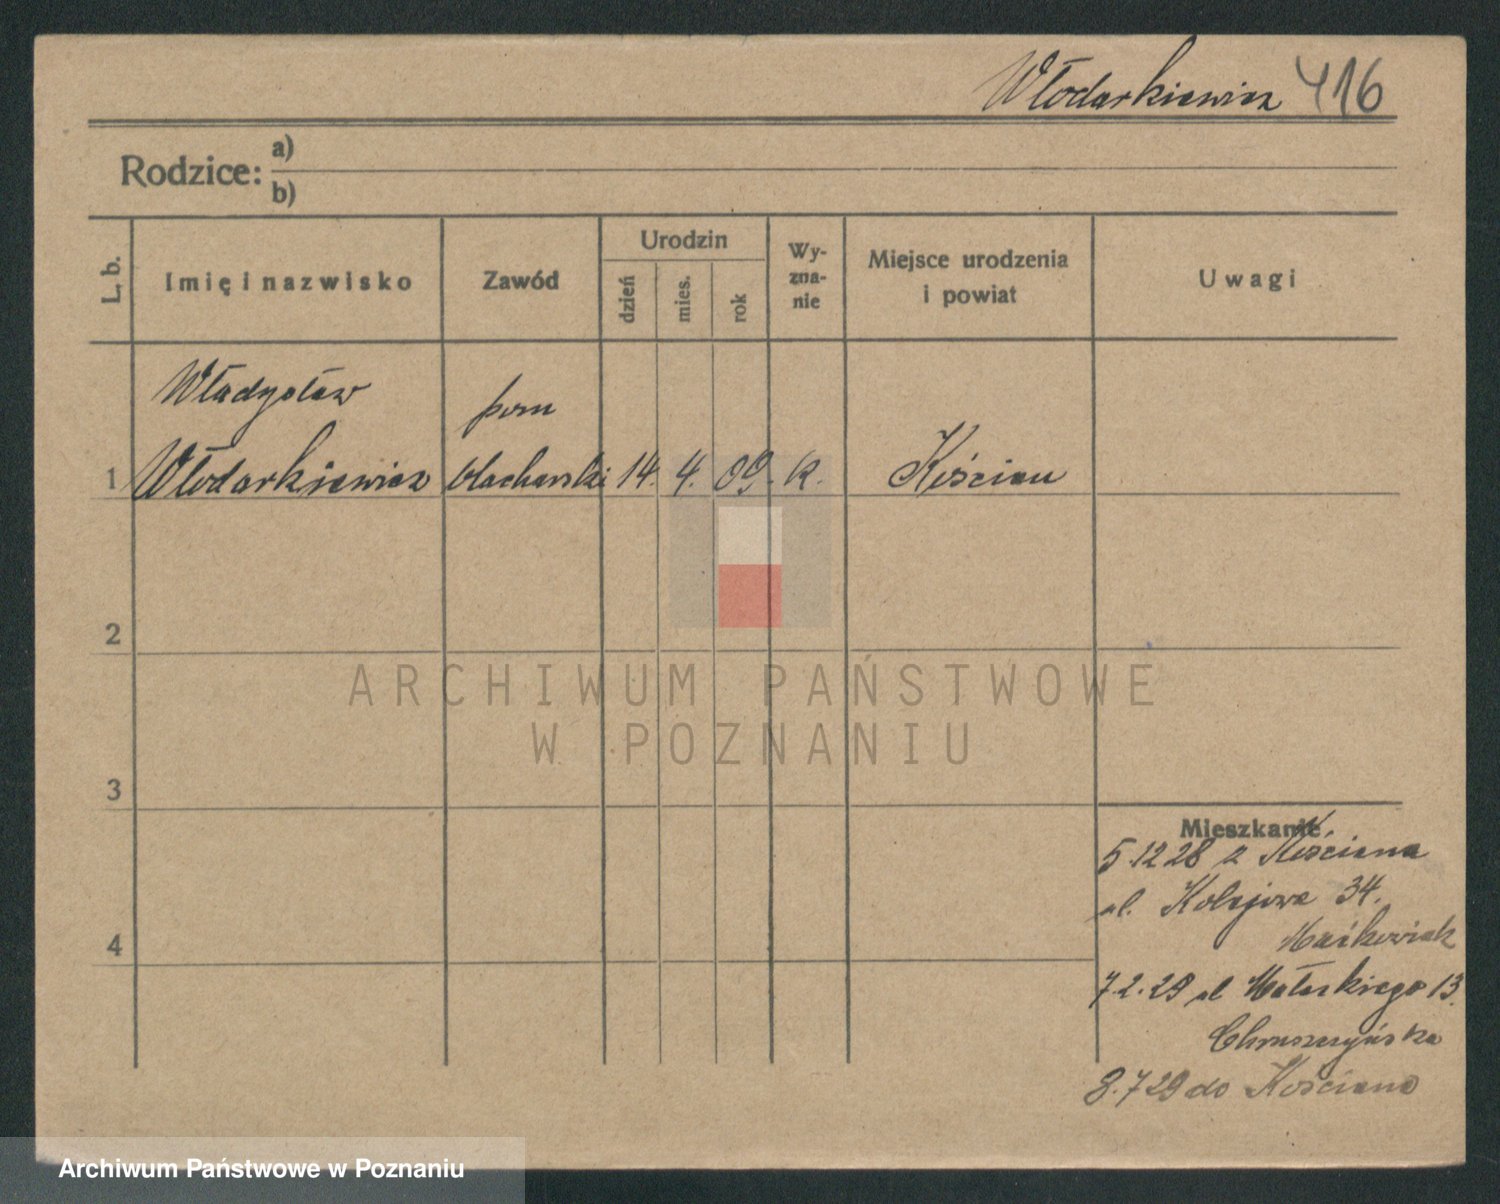 Włodarkiewicz 416
Rodzice: a)
b)
L. b.
Imię i nazwisko
Zawód
Urodzin
dzień
mies.
rok
Wy-
zna-
nie
Miejsce urodzenia
i powiat
Uwagi
Władysław
pom
1 Włodarkiewicz blacharski 14. 4. 09. k. Kościan
2
3
4
ARCHIWUM PAŃSTWOWE
W POZNANIU
Mieszkanie
5.12 28 z Kościana
ul. Kolejowa 34.
Maćkowiak
7.2.29 ul 13.
Chruszczyńska
8.7 29 do Kościana
Archiwum Państwowe w Poznaniu